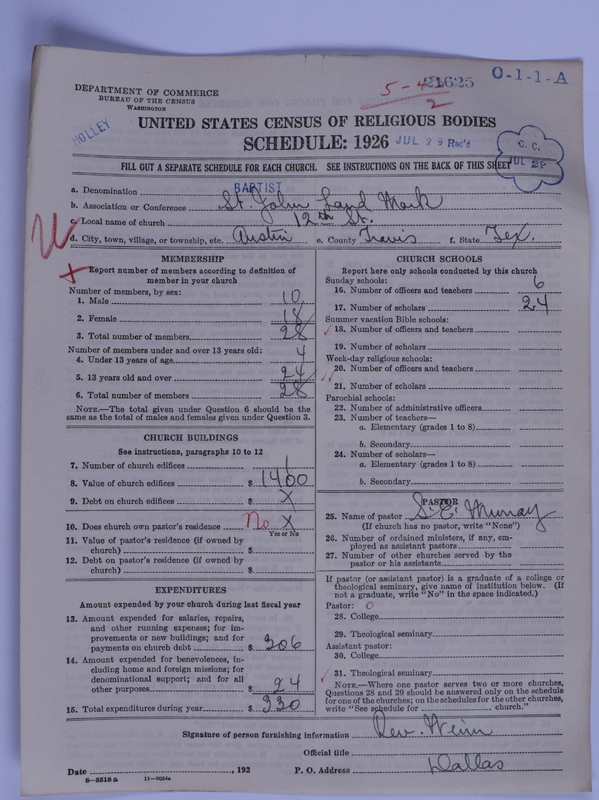 5-41
21625
2
O-1-1-A
DEPARTMENT OF COMMERCE
BUREAU OF THE CENSUS
WASHINGTON
HOLLEY
UNITED STATES CENSUS OF RELIGIOUS BODIES
SCHEDULE: 1926 JUL 29 Rec'd
C. C.
JUL 29
FILL OUT A SEPARATE SCHEDULE FOR EACH CHURCH. SEE INSTRUCTIONS ON THE BACK OF THIS SHEET
a. Denomination BAPTIST
b. Association or Conference St. John Land Mark
c. Local name of church 12th St.
d. City, town, village, or township, etc. Austin e. County Travis f. State Tex.
MEMBERSHIP
Report number of members according to definition of
member in your church
Number of members, by sex:
1. Male 10
2. Female 18
3. Total number of members 28
Number of members under and over 13 years old:
4. Under 13 years of age 4
5. 13 years old and over 24
6. Total number of members 28
NOTE.—The total given under Question 6 should be the
same as the total of males and females given under Question 3.
CHURCH BUILDINGS
See instructions, paragraphs 10 to 12
7. Number of church edifices 1
8. Value of church edifices $ 1400
9. Debt on church edifices $ X
10. Does church own pastor's residence No X
Yes or No
11. Value of pastor's residence (if owned by
church) $
12. Debt on pastor's residence (if owned by
church) $
EXPENDITURES
Amount expended by your church during last fiscal year
13. Amount expended for salaries, repairs,
and other running expenses; for im-
provements or new buildings; and for
payments on church debt $ 306
14. Amount expended for benevolences, in-
cluding home and foreign missions; for
denominational support; and for all
other purposes $ 24
15. Total expenditures during year $ 330
CHURCH SCHOOLS
Report here only schools conducted by this church
Sunday schools:
16. Number of officers and teachers 6
17. Number of scholars 24
Summer vacation Bible schools:
18. Number of officers and teachers
19. Number of scholars
Week-day religious schools:
20. Number of officers and teachers
21. Number of scholars
Parochial schools:
22. Number of administrative officers
23. Number of teachers—
a. Elementary (grades 1 to 8)
b. Secondary
24. Number of scholars—
a. Elementary (grades 1 to 8)
b. Secondary
PASTOR
25. Name of pastor S. E. Murray
(If church has no pastor, write "None")
26. Number of ordained ministers, if any, em-
ployed as assistant pastors
27. Number of other churches served by the
pastor or his assistants
If pastor (or assistant pastor) is a graduate of a college or
theological seminary, give name of institution below. (If
not a graduate, write "No" in the space indicated.)
Pastor: 0
28. College
29. Theological seminary
Assistant pastor:
30. College
31. Theological seminary
NOTE.—Where one pastor serves two or more churches,
Questions 28 and 29 should be answered only on the schedule
for one of the churches; on the schedules for the other churches,
write "See schedule for church."
Signature of person furnishing information Rev.
Official title
Date , 192 P. O. Address Dallas
8-5518a 11-9054a